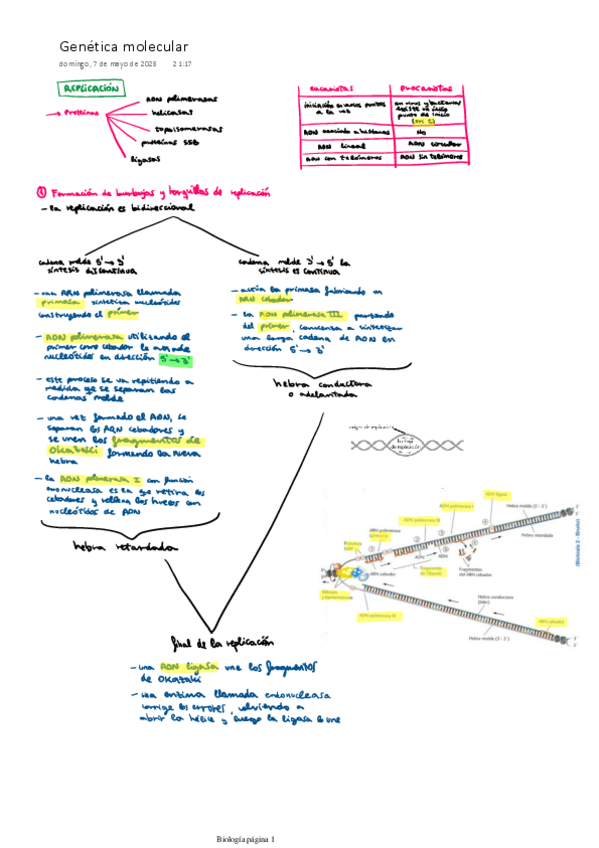 Genética molecular
domingo, 7 de mayo de 2023 21:17
REPLICACIÓN
→ Proteínas
ADN polimerasas
helicasas
topoisomerasas
proteínas SSB
ligasas
eucariotas
procariotas
iniciación en varios puntos
a la vez
en virus y bacterias
existe un único
punto de inicio
(ori C)
ADN asociado a histonas
No
ADN lineal
ADN circular
ADN con telómeros
ADN sin telómeros
① Formación de burbujas y horquillas de replicación
- La replicación es bidireccional
cadena molde 5' → 3'
síntesis discontinua
- una ARN polimerasa llamada
primasa sintetiza nucleótidos
construyendo el primer
- ADN polimerasa utilizando el
primer como cebador le añade
nucleótidos en dirección 5' → 3'
- este proceso se va repitiendo a
medida que se separan las
cadenas molde
- una vez formado el ADN, se
separan los ARN cebadores y
se unen los fragmentos de
Okazaki formando la nueva
hebra
- la ADN polimerasa I con función
exonucleasa es la que retira los
cebadores y rellena los huecos con
nucleótidos de ADN
hebra retardada
cadena molde 3' → 5' la
síntesis es continua
- actúa la primasa fabricando un
ARN cebador
- la ADN polimerasa III partiendo
del primer, comienza a sintetizar
una larga cadena de ADN en
dirección 5' → 3'
hebra conductora
o adelantada
origen de replicación
burbuja
de replicación
ADN ligasa
ADN polimerasa I
ADN polimerasa III
Hebra molde (5' - 3')
Hebra retardada
ARN cebador
Fragmentos
de Okazaki
Fragmentos
del ARN cebador
Hebra conductora
(líder)
ADN polimerasa III
ARN cebador
Hebra molde (3' - 5')
final de la replicación
- una ADN ligasa une los fragmentos
de Okazaki
- una enzima llamada endonucleasa
corrige los errores, volviendo a
abrir la hélice y luego la ligasa la une
Biología página 1